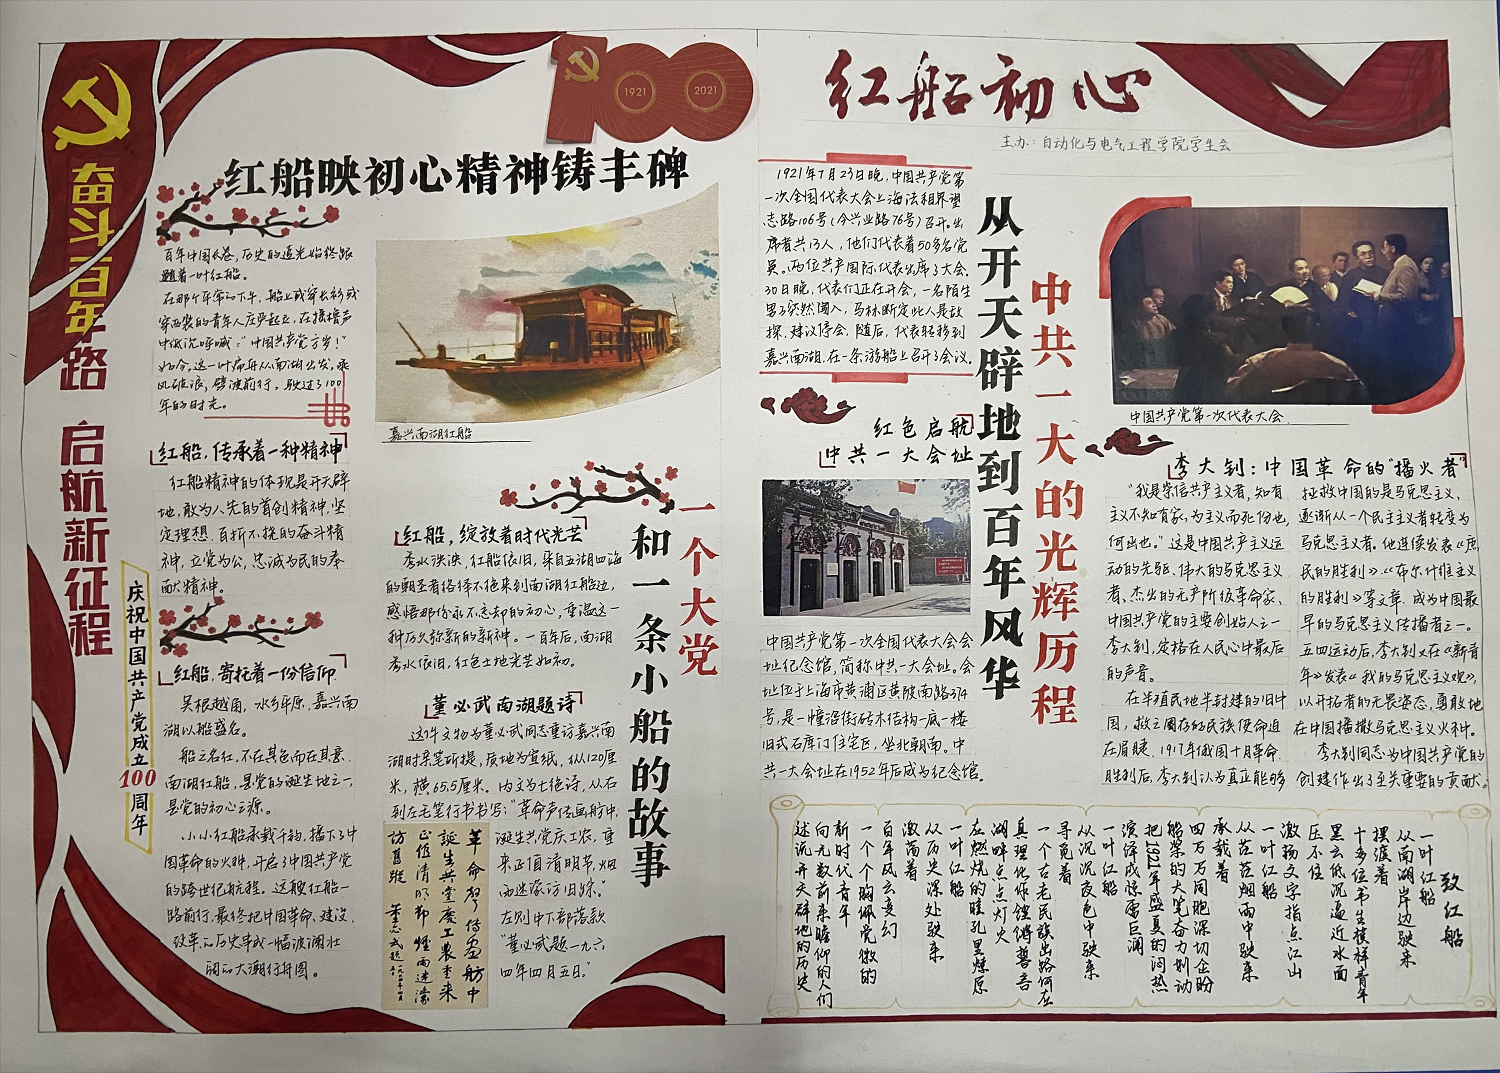 奋斗百年路 启航新征程
庆祝中国共产党成立100周年
100
1921
2021
红船映初心精神铸丰碑
百年中国长卷，历史的追光始终跟
随着一叶红船。
穿西装的青年人庄严起立，在摇橹声
中低沉呼喊：“中国共产党万岁！”
如今，这一叶扁舟从南湖出发，乘
风破浪，劈波前行，驶过了100
年的时光。
嘉兴南湖红船
红船，传承着一种精神
红船精神的体现是开天辟
地、敢为人先的首创精神，坚
定理想、百折不挠的奋斗精
神，立党为公，忠诚为民的奉
献精神。
红船，寄托着一份信仰
吴根越角，水乡平原，嘉兴南
湖以船盛名。
船之名红，不在其色而在其意。
南湖红船，是党的诞生地之一，
是党的初心之源。
小小红船承载千钧，播下了中
国革命的火种，开启了中国共产党
的跨世纪航程。这艘红船一
路前行，最终把中国革命、建设、
改革的历史串成一幅波澜壮
阔的大潮行舟图。
一个大党
和一条小船的故事
红船，绽放着时代光芒
秀水泱泱，红船依旧，来自五湖四海
的朝圣者络绎不绝来到南湖红船边，
感悟那份永不忘却的初心，重温这一
种历久弥新的精神。一百年后，南湖
秀水依旧，红色土地光芒如初。
董必武南湖题诗
这件文物为董必武同志重访嘉兴南
湖时亲笔所提，质地为宣纸，纵120厘
米，横65.5厘米。内文为七绝诗，从右
到左毛笔行书书写：“革命声传画舫中，
诞生共党庆工农，重
来正值清明节，烟
雨迷濛访旧踪。”
左侧中下部落款
“董必武题一九六
四年四月五日。”
革命声传画舫中
诞生共党庆工农重来
正值清明节烟雨迷濛
访旧踪 董必武题
红船初心
主办：自动化与电气工程学院学生会
1921年7月23日晚，中国共产党第
一次全国代表大会上海法租界望
志路106号（今兴业路76号）召开。出
席者共13人，他们代表着50多名党
员。两位共产国际代表出席了大会。
30日晚，代表们正在开会，一名陌生
男子突然闯入，马林断定此人是敌
探，建议停会，随后，代表转移到
嘉兴南湖，在一条游船上召开了会议。
从开天辟地到百年风华
中共一大的光辉历程
中国共产党第一次代表大会
红色启航
中共一大会址
中国共产党第一次全国代表大会会
址纪念馆，简称中共一大会址。会
址位于上海市黄浦区黄陂南路374
号，是一幢沿街砖木结构一底一楼
旧式石库门住宅区，坐北朝南。中
共一大会址在1952年后成为纪念馆。
李大钊：中国革命的“播火者”
“我是崇信共产主义者，知有
主义不知有家，为主义而死份也，
何出也。”这是中国共产主义运
动的先驱、伟大的马克思主义
者、杰出的无产阶级革命家、
中国共产党的主要创始人之一
李大钊，定格在人民心中最后
的声音。
在半殖民地半封建的旧中
国，救亡图存的民族使命迫
在眉睫。1917年俄国十月革命
胜利后，李大钊认为真正能够
拯救中国的是马克思主义，
逐渐从一个民主主义者转变为
马克思主义者。他连续发表《庶
民的胜利》、《布尔什维主义
的胜利》等文章，成为中国最
早的马克思主义传播者之一。
五四运动后，李大钊又在《新青
年》发表《我的马克思主义观》，
以开拓者的无畏姿态，勇敢地
在中国播撒马克思主义火种。
李大钊同志为中国共产党的
创建作出了至关重要的贡献。
致红船
一叶红船
从南湖岸边驶来
摆渡着
十多位书生模样青年
黑云低沉逼近水面
压不住
激扬文字指点江山
一叶红船
从茫茫烟雨中驶来
承载着
四万万同胞深切企盼
船桨的大笔奋力划动
把1921年盛夏的闷热
演绎成惊雷巨澜
一叶红船
从沉沉夜色中驶来
寻觅着
一个古老民族出路何在
真理化作铿锵誓言
湖畔点点灯火
在燃烧的瞳孔里燎原
一叶红船
从历史深处驶来
激荡着
百年风云变幻
一个个胸佩党徽的
新时代青年
向无数前来瞻仰的人们
述说开天辟地的历史